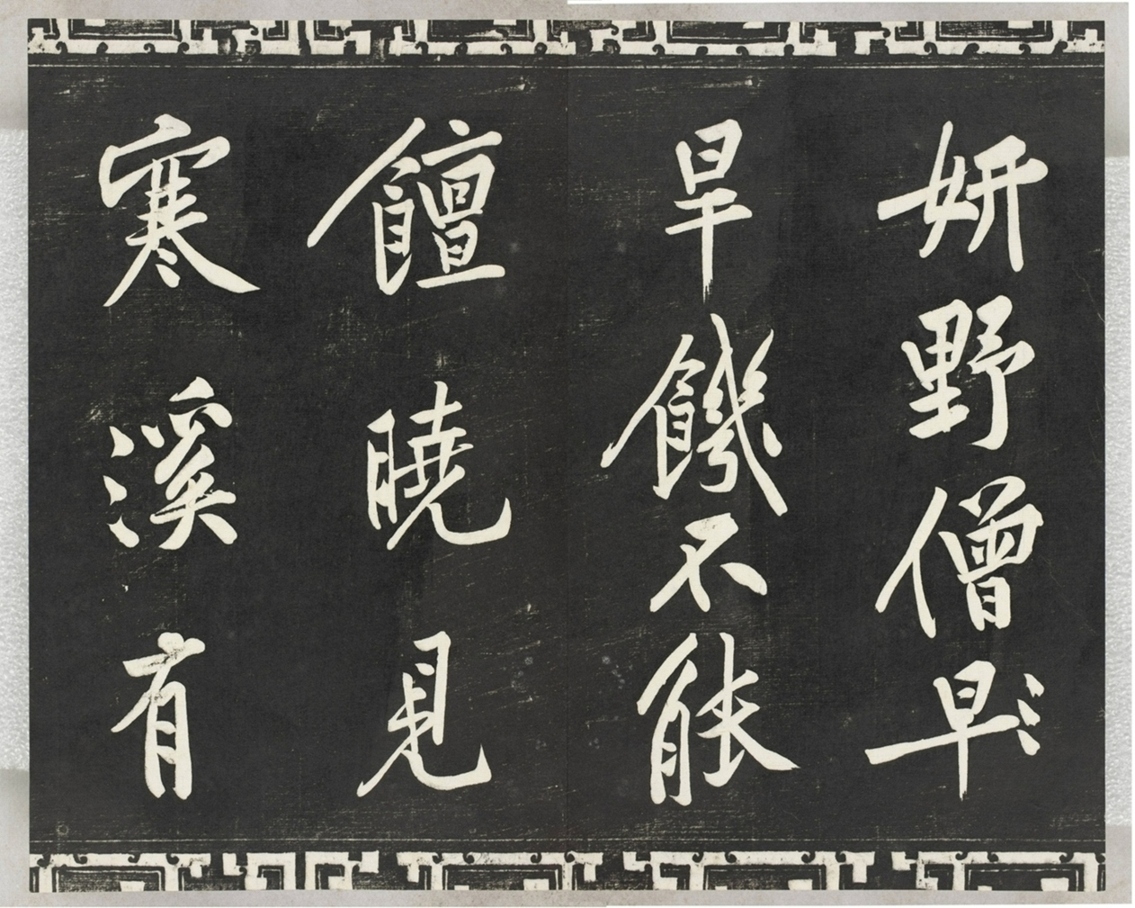 妍野僧早
旱饑不能
饘曉見
寒溪有